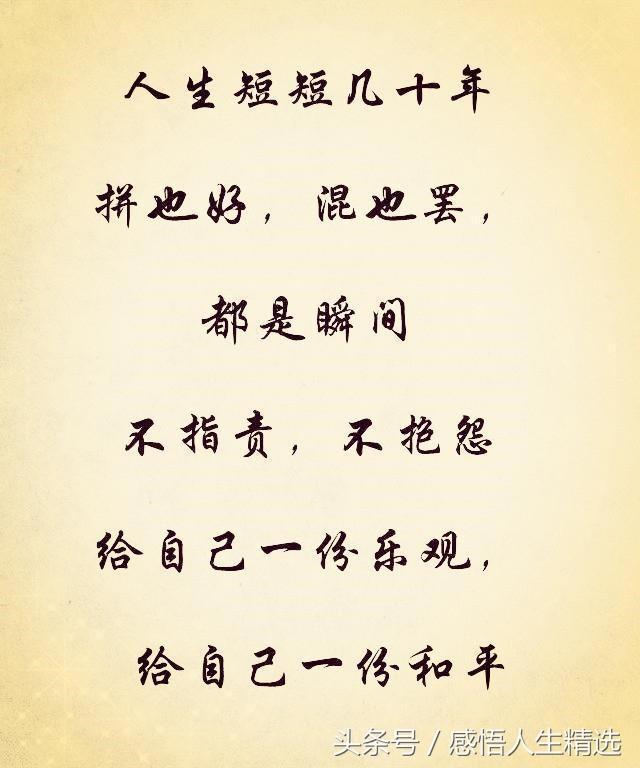 人生短短几十年
拼也好，混也罢，
都是瞬间
不指责，不抱怨
给自己一份乐观，
给自己一份和平
头条号 / 感悟人生精选